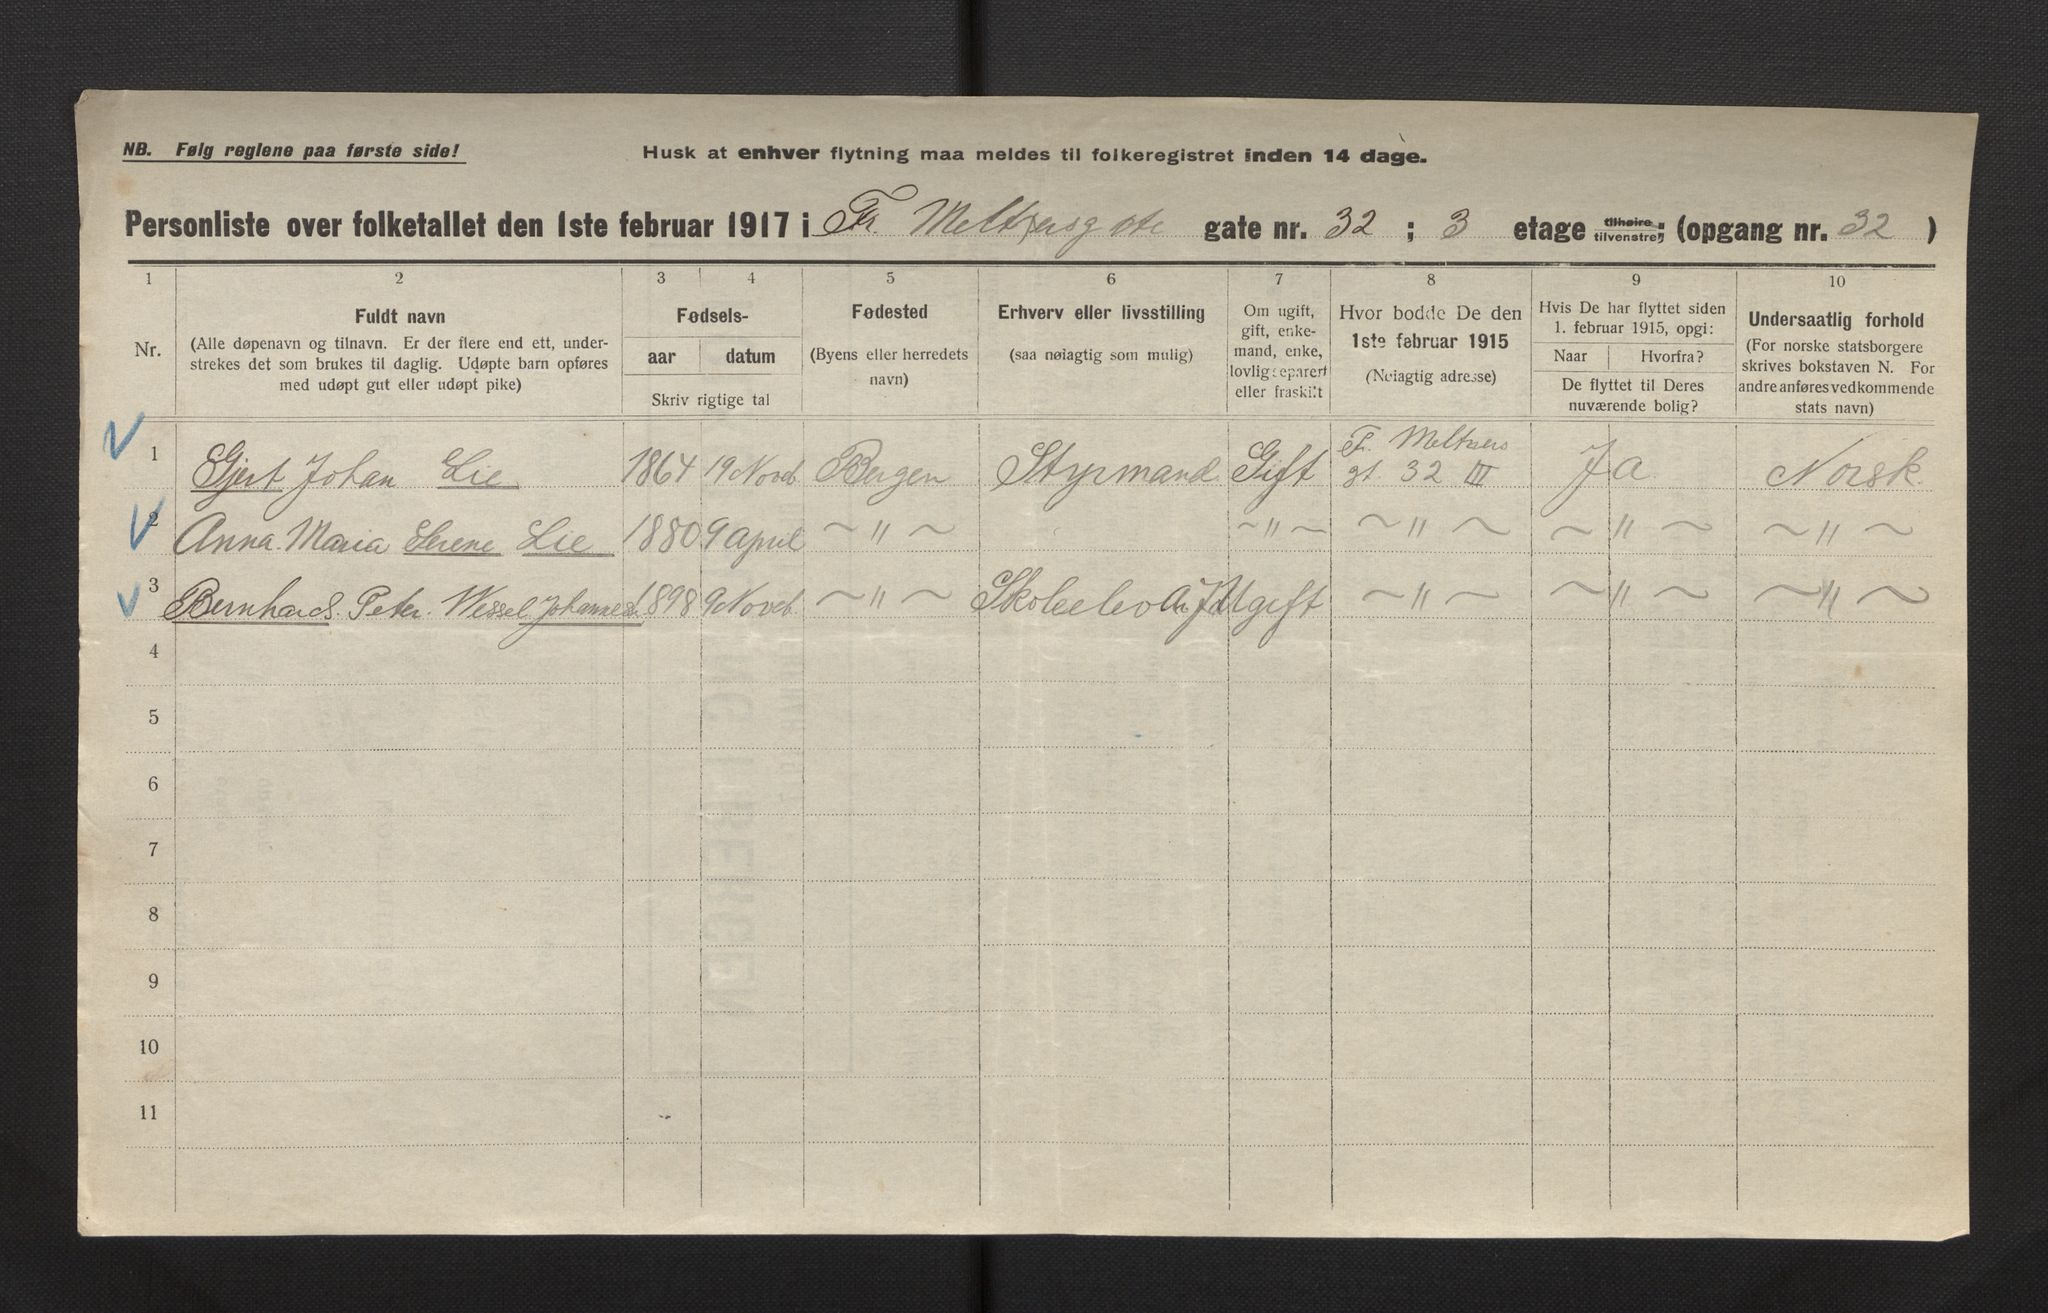 NB. Følg reglene paa første side!
Husk at enhver flytning maa meldes til folkeregistret inden 14 dage.
Personliste over folketallet den 1ste februar 1917 i Fr. Meltzersgate gate nr. 32 ; 3 etage tilhøire tilvenstre; (opgang nr. 32 )
1 2 3 4 5 6 7 8 9 10
Nr.
Fuldt navn
(Alle døpenavn og tilnavn. Er der flere end ett, under-
strekes det som brukes til daglig. Udøpte barn opføres
med udøpt gut eller udøpt pike)
Fødsels-
aar datum
Skriv rigtige tal
Fødested
(Byens eller herredets
navn)
Erhverv eller livsstilling
(saa nøiagtig som mulig)
Om ugift,
gift, enke-
mand, enke,
lovlig separert
eller fraskilt
Hvor bodde De den
1ste februar 1915
(Nøiagtig adresse)
Hvis De har flyttet siden
1. februar 1915, opgi:
Naar Hvorfra?
De flyttet til Deres
nuværende bolig?
Undersaatlig forhold
(For norske statsborgere
skrives bokstaven N. For
andre anføres vedkommende
stats navn)
1 Gjert Johan Lie 1864 19 Novb Bergen Styrmand Gift Fr. Meltzers gt. 32 III Ja Norsk.
2 Anna Maria Serene Lie 1880 9 April ~ " ~ ~ " ~ ~ " ~ ~ " ~ ~ " ~
3 Bernhard. Peter. Wessel 1898 9 Novb. ~ " ~ Skoleelev Ugift ~ " ~ ~ " ~ ~ " ~
4
5
6
7
8
9
10
11